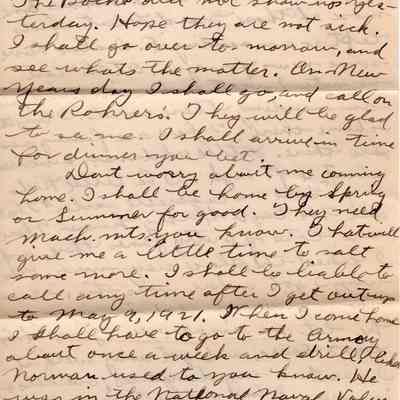 The Boches did not show up yes-
terday. Hope they are not sick.
I shall go over to-morrow, and
see whats the matter. On New
Years day I shall go, and call on
the Rohrers'. They will be glad
to see me. I shall arrive in time
for dinner you bet.
Dont worry about me coming
home. I shall be home by Spring
or Summer for good. They need
Mach. mts. you know. That will
give me a little time to salt
some more. I shall be liable to
call any time after I get out up
to May 9, 1921. When I come home
I shall have to go to the Armory
about once a week and drill like
Norman used to you know. He
was in the National Naval